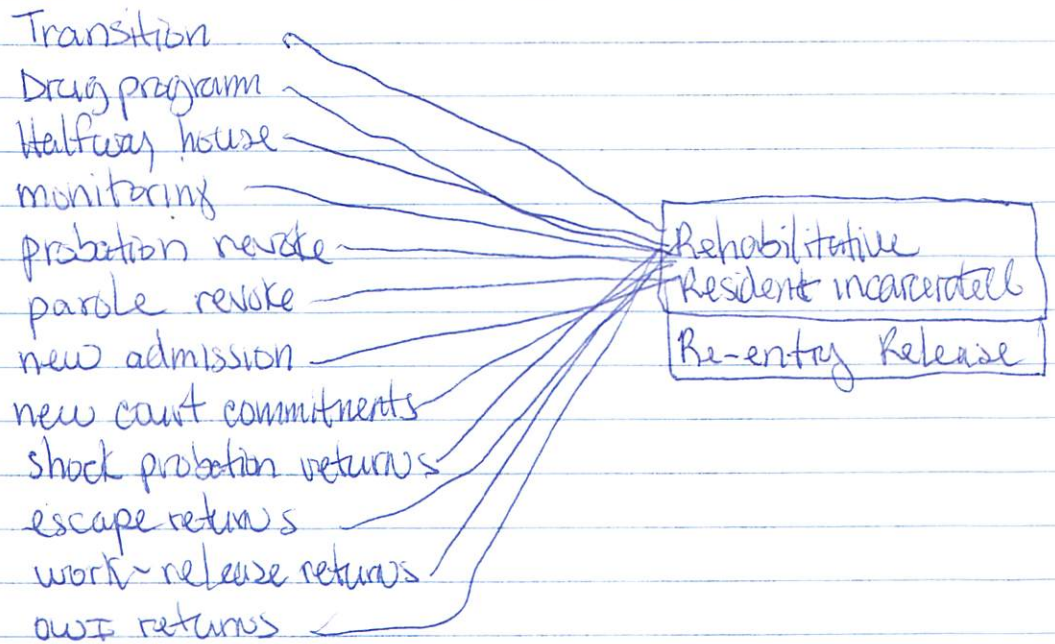 Transition
Drug programm
Halfway house
monitoring
probation revoke
parole revoke
new admission
new court commitments
shock probation returns
escape returns
work-release returns
OWI returns
Rehabilitative
Resident incarcerated
Re-entry Release